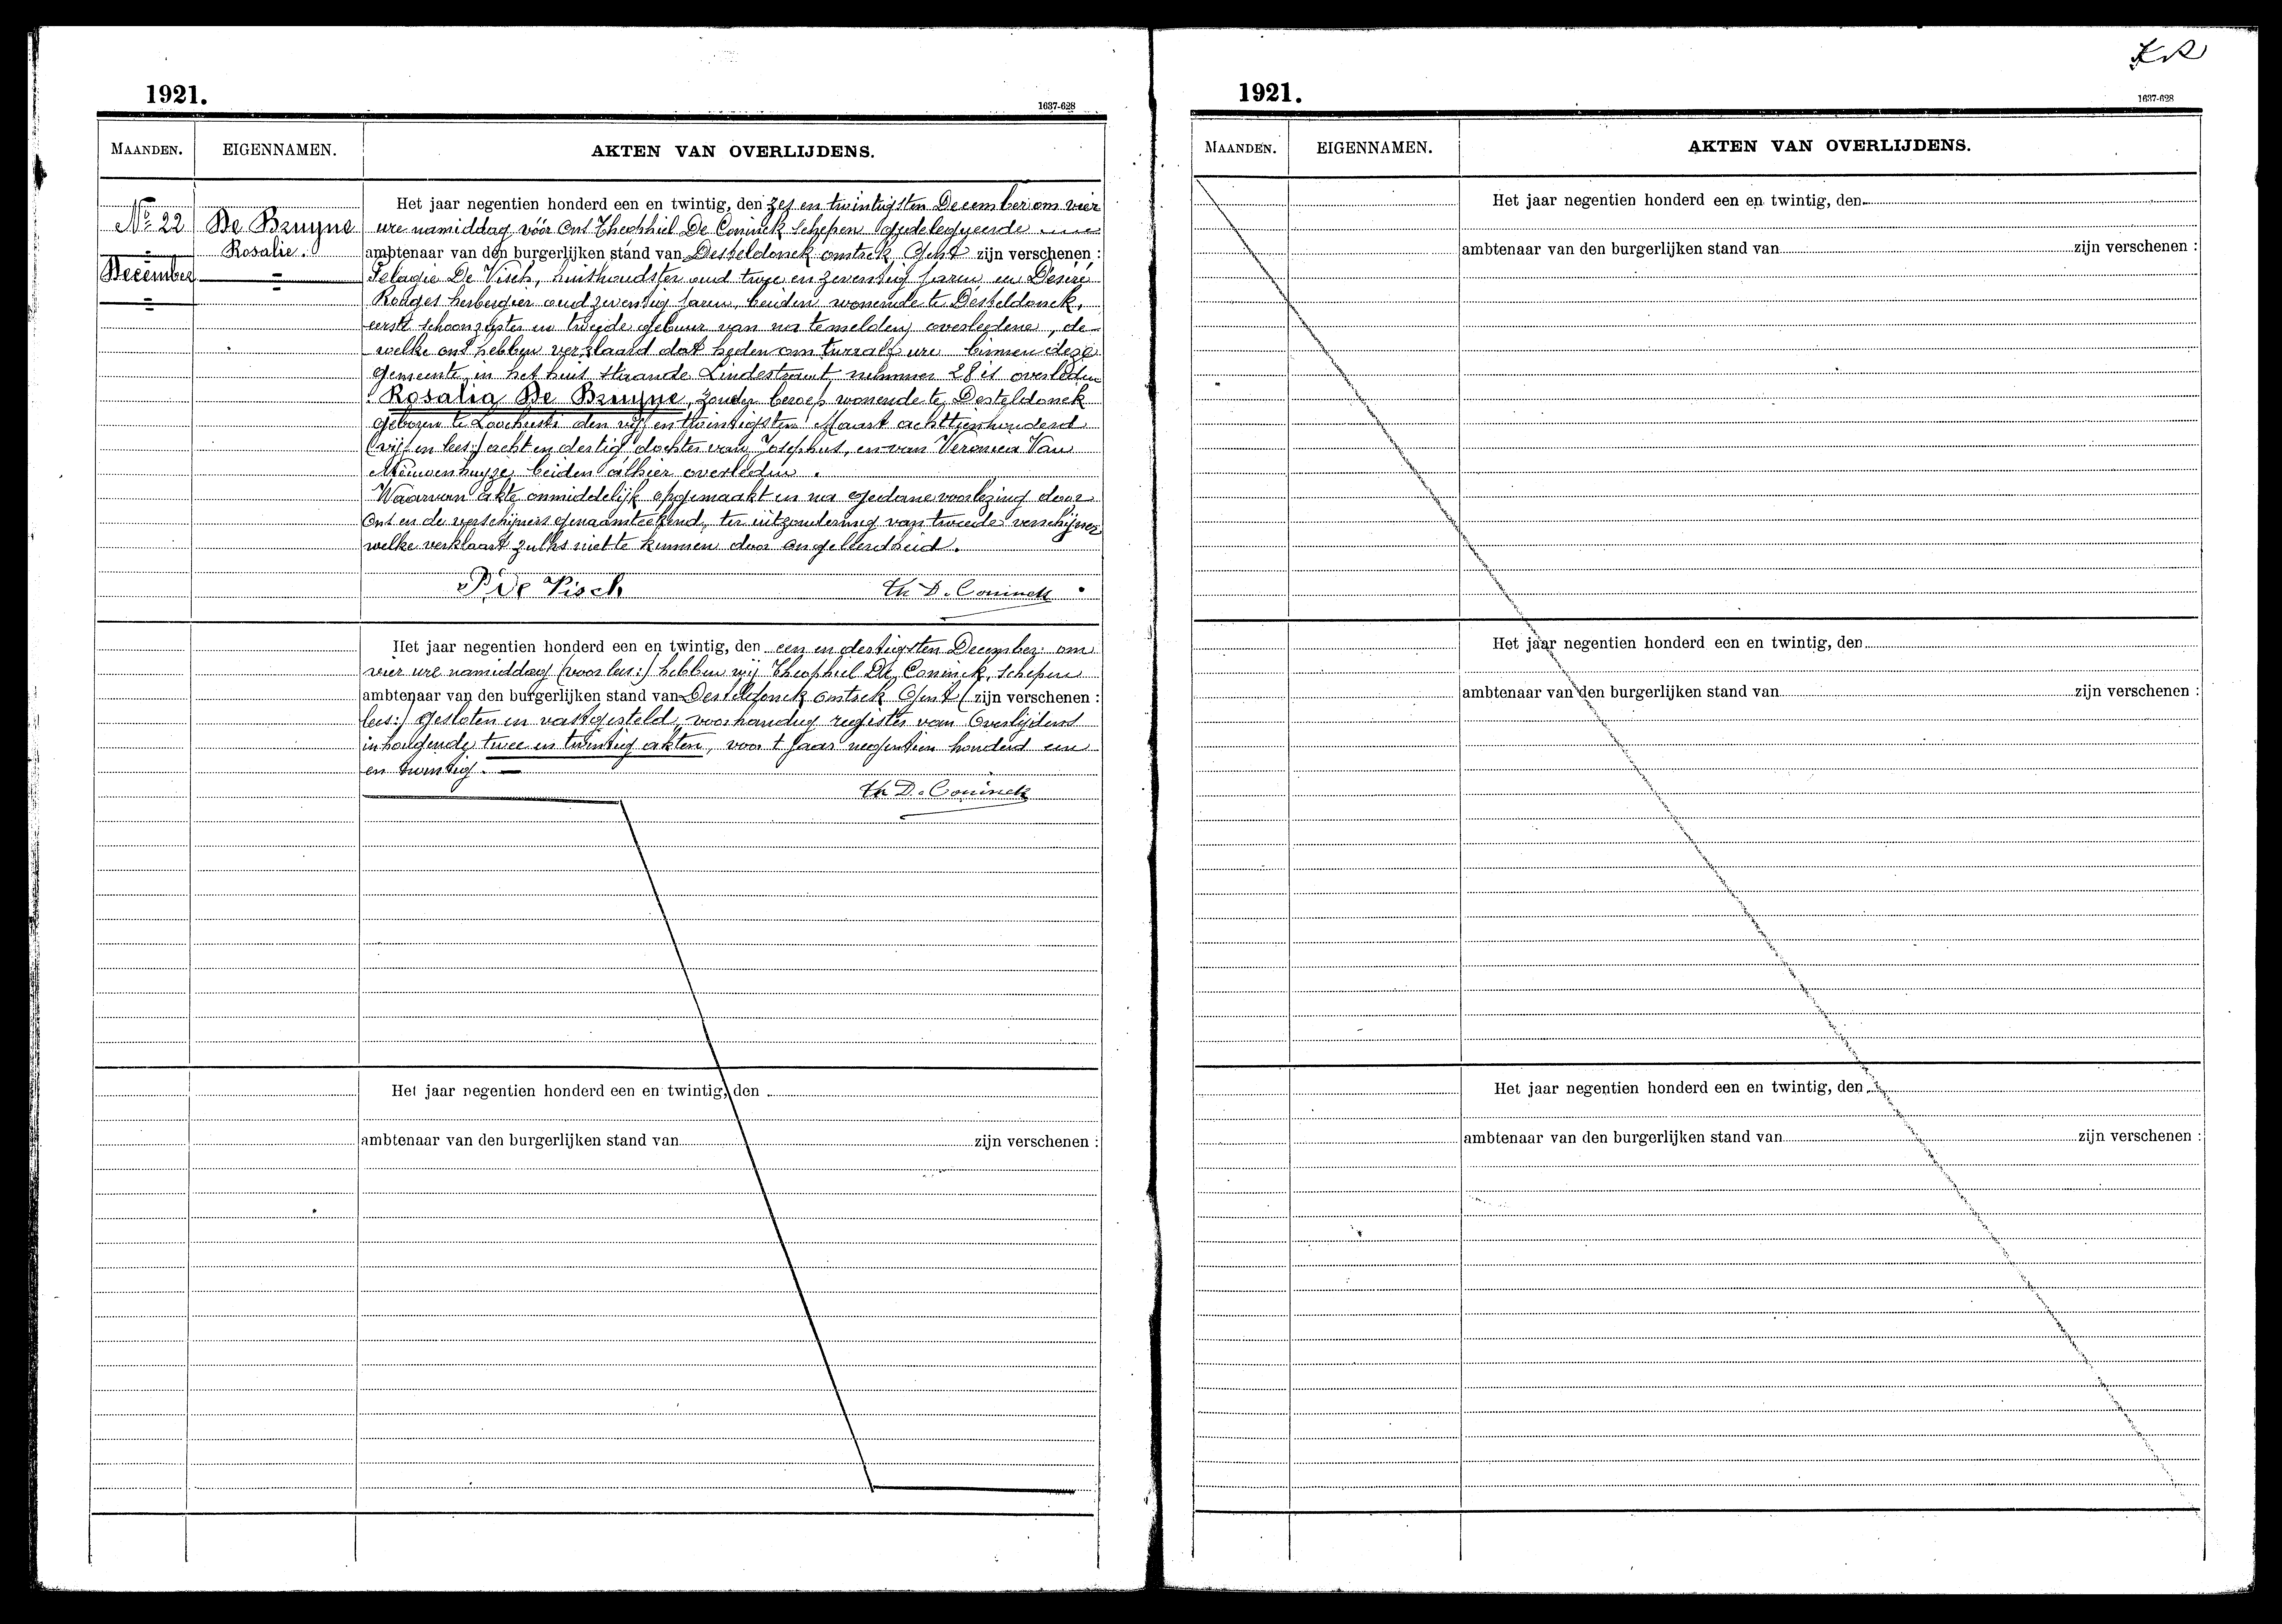 1921.
1637-628
MAANDEN.
EIGENNAMEN.
AKTEN VAN OVERLIJDENS.
No 22
December
De Bruyne
Rosalie.
Het jaar negentien honderd een en twintig, den zes en twintigsten December om vier
ure namiddag vóór Ons Theophiel De Coninck Schepen gedelegueerde
ambtenaar van den burgerlijken stand van Desteldonck omtrek Gent zijn verschenen :
Pelagie De Visch, huishoudster oud twee en zeventig jaren en Desiré
herbergier oud zeventig jaren, beiden wonende te Desteldonck,
eerste schoonzuster en tweede gebuur van na temelden overledene, de-
welke ons hebben verklaard dat heden om ure binnen deze
gemeente in het huis staande Lindestraat nummer 28 is overleden
Rosalia De Bruyne, zonder beroep wonende te Desteldonck
geboren te Loochristi den vijf en twintigsten Maart achttienhonderd
(vijf en lees:) acht en dertig dochter van Josephus, en van Veronica Van
Nieuwenhuyze beiden alhier overleden.
Waarvan akte onmiddelijk opgemaakt en na gedane voorlezing door
Ons en de verschijners genaamteekend, ter uitzondering van tweede verschijner
welke verklaart zulks niet te kunnen door ongeleerdheid.
P De Visch
Th De Coninck
Het jaar negentien honderd een en twintig, den een en dertigsten December om
vier ure namiddag (voor lees:) hebben wij Theophiel De Coninck, Schepen
ambtenaar van den burgerlijken stand van Desteldonck omtrek Gent ( zijn verschenen :
lees:) gesloten en vastgesteld, voorhandig register van Overlijdens
inhoudende twee en twintig akten, voor t jaar negentien honderd een
en twintig.
Th De Coninck
Het jaar negentien honderd een en twintig, den
ambtenaar van den burgerlijken stand van zijn verschenen :
1921.
1637-628
MAANDEN.
EIGENNAMEN.
AKTEN VAN OVERLIJDENS.
Het jaar negentien honderd een en twintig, den
ambtenaar van den burgerlijken stand van zijn verschenen :
Het jaar negentien honderd een en twintig, den
ambtenaar van den burgerlijken stand van zijn verschenen :
Het jaar negentien honderd een en twintig, den
ambtenaar van den burgerlijken stand van zijn verschenen :